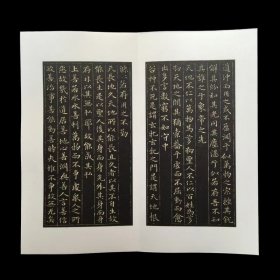 道沖而用之又不盈淵乎似萬物之宗挫其銳
解其紛和其光同其塵湛兮似若存吾不知
其誰之子象帝之先
天地不仁以萬物為芻狗聖人不仁以百姓為芻
狗天地之間其猶橐籥乎虛而不屈動而愈
出多言數窮不如守中
谷神不死是謂玄牝玄牝之門是謂天地根
綿綿若存用之不勤
天長地久天地所以能長且久者以其不自生故
能長生是以聖人後其身而身先外其身而身
存非以其無私耶故能成其私
上善若水水善利萬物而不爭處衆人之所
惡故幾於道居善地心善淵與善人言善信
政善治事善能動善時夫唯不爭故無尤矣